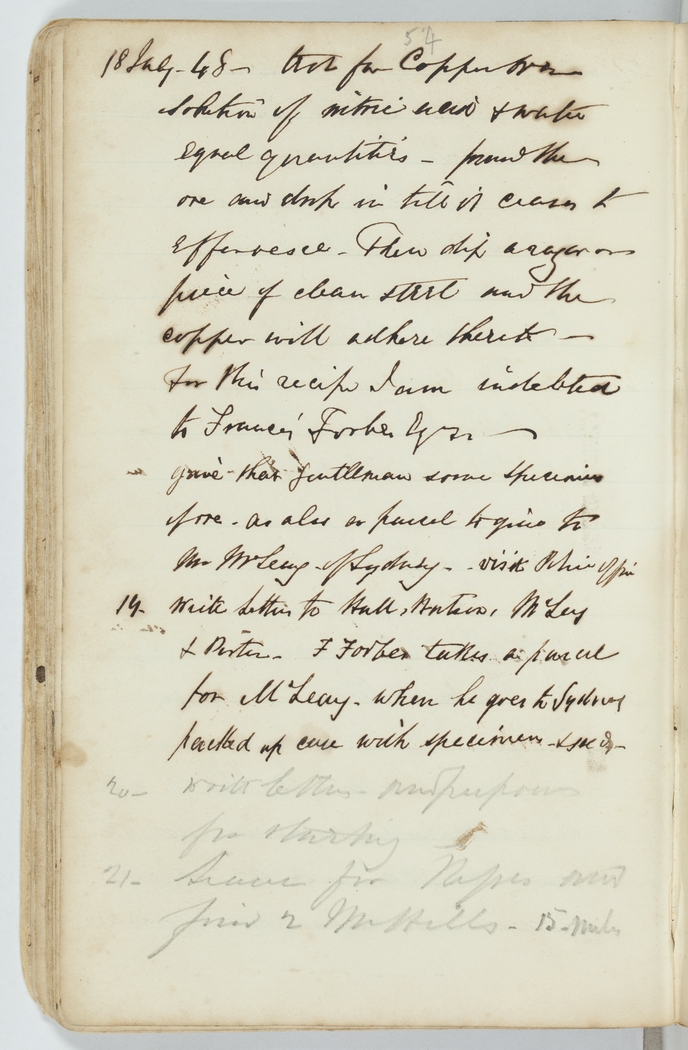 54
18 July - 48 - test for Copper Ore
solution of nitric acid & water
equal quantities - pound the
ore and drop in till it ceases to
effervesce - Then dip a razor or
piece of clean steel and the
copper will adhere thereto -
for this recipe I am indebted
to Francis Forbes Esqre -
gave that gentleman some specimens
of ore - as also a parcel to give to
Mr McLeay of Sydney - visit Police Office
19 - write letters to Hall, McLeay
& Porter - F Forbes takes a parcel
for McLeay - when he goes to Sydney
packed up case with specimens & seeds -
20 - write letters - and prepare
for starting
21 - Leave for and
find Mr Hills - 15 miles